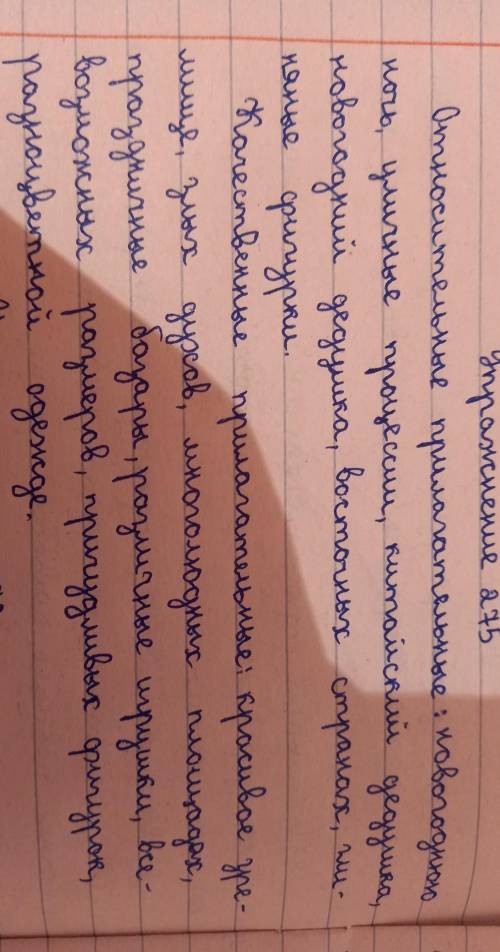 Упражнение 275
Относительные прилагательные: новогоднюю
ночь, уличные процессии, китайский дедушка,
новогодний дедушка, восточных странах, гли-
няные фигурки.
Качественные прилагательные: красивое зре-
лище, злых духов, многолюдных площадях,
праздничные базары, различные игрушки, все-
возможных размеров, причудливых фигурок,
разноцветной одежде.